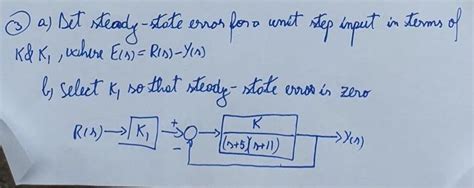 ③ a) Det steady-state error for a unit step input in terms of
K & K₁, where E(s) = R(s) - Y(s)
b) Select K₁ so that steady-state error is zero
R(s) → K₁ + - K → Y(s)
(s+5)(s+11)